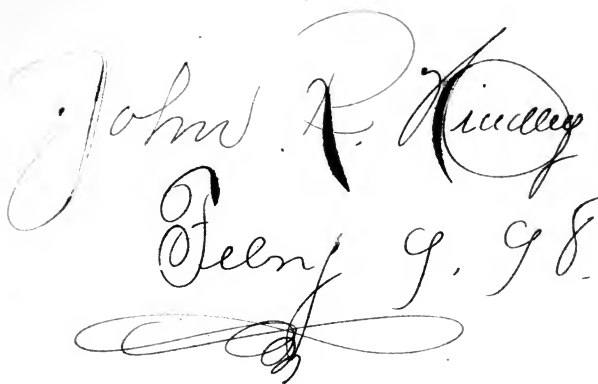 John R. Hindley
Feby 9. 98.